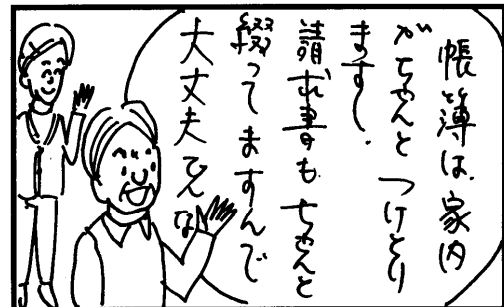 帳簿は、家内
がちゃんと つけとり
ます〜。
請求書も ちゃんと
綴ってますんで
大丈夫でんな